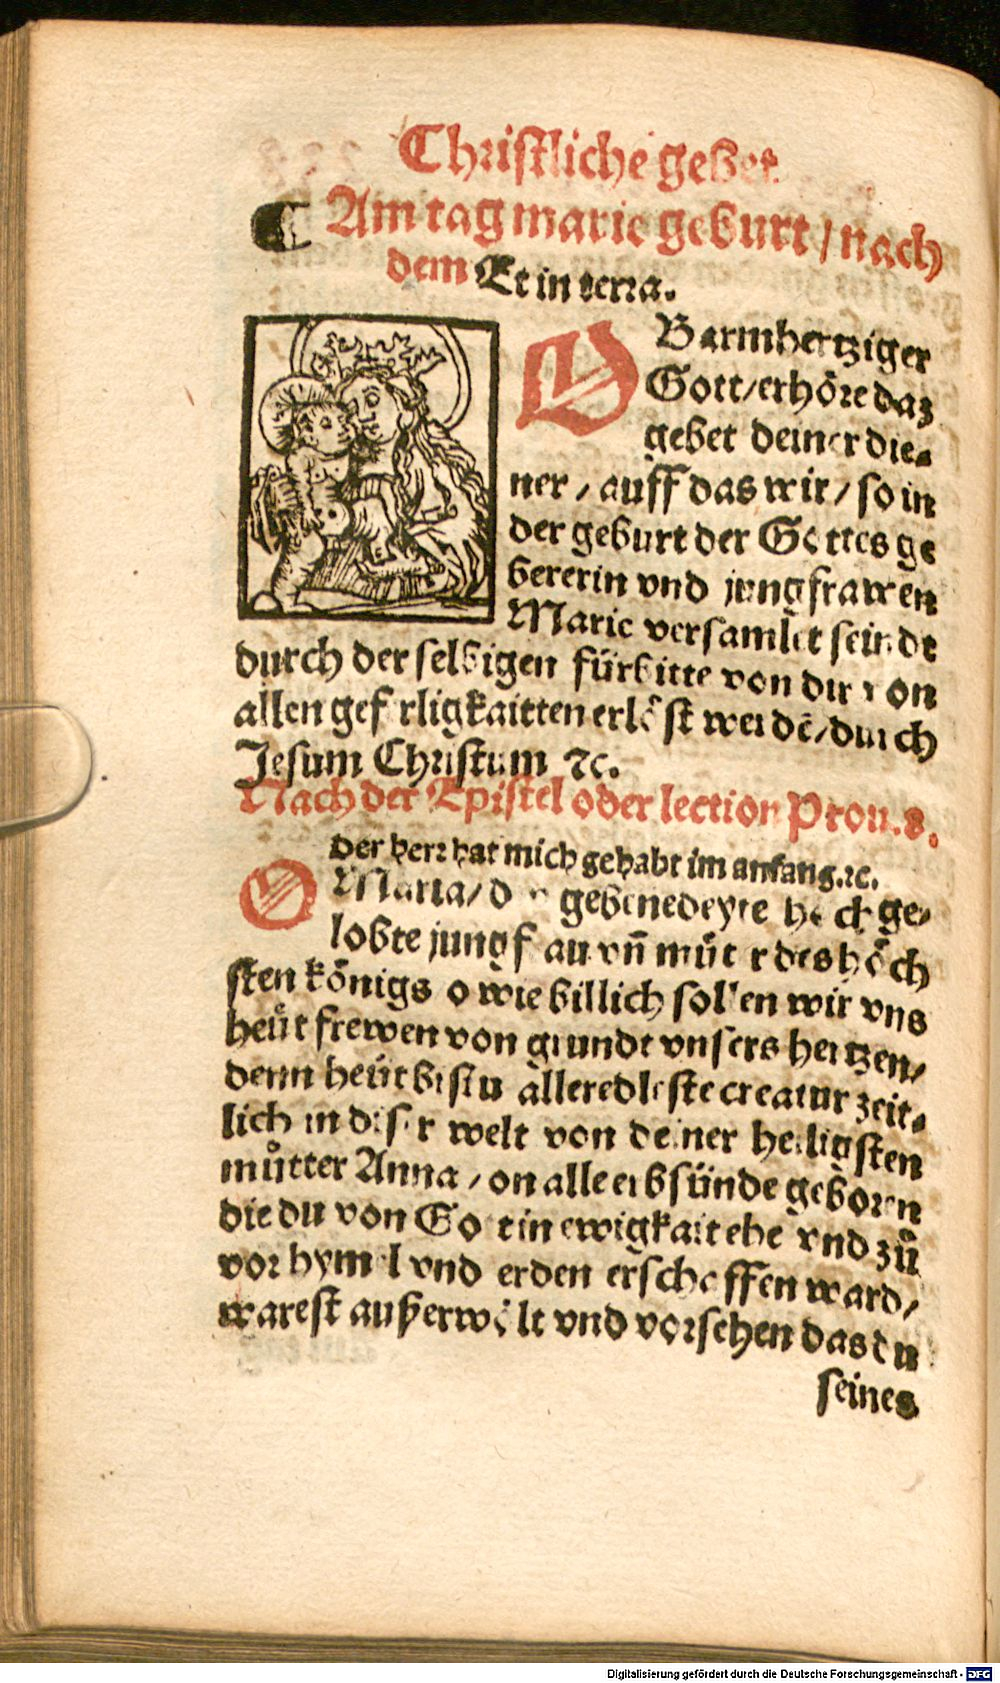 Christliche gebet
¶ Am tag marie geburt / nach
dem Et in terra.
O Barmhertziger
Gott / erhöre daz
gebet deiner die⸗
ner / auff das wir / so in
der geburt der Gottes ge
bererin vnd jungfrawen
Marie versamlet seindt
durch der selbigen fürbitte von dir von
allen geferligkaitten erlöst werdē / durch
Jesum Christum ⁊c.
Nach der Epistel oder lection Prou. 8.
der herr hat mich gehabt im anfang. ⁊c.
O Maria / du gebenedeyte hoch ge⸗
lobte jungfrau vn̄ můter des höch
sten königs o wie billich sollen wir vns
heüt frewen von grundt vnsers hertzen /
denn heüt bistu alleredleste creatur zeit⸗
lich in diser welt von deiner heiligsten
můtter Anna / on alle erbsünde geboren
die du von Got in ewigkait ehe vnd zů
vor hymel vnd erden erschaffen ward /
warest außerwölt vnd vorsehen das du
seines
Digitalisierung gefördert durch die Deutsche Forschungsgemeinschaft - DFG